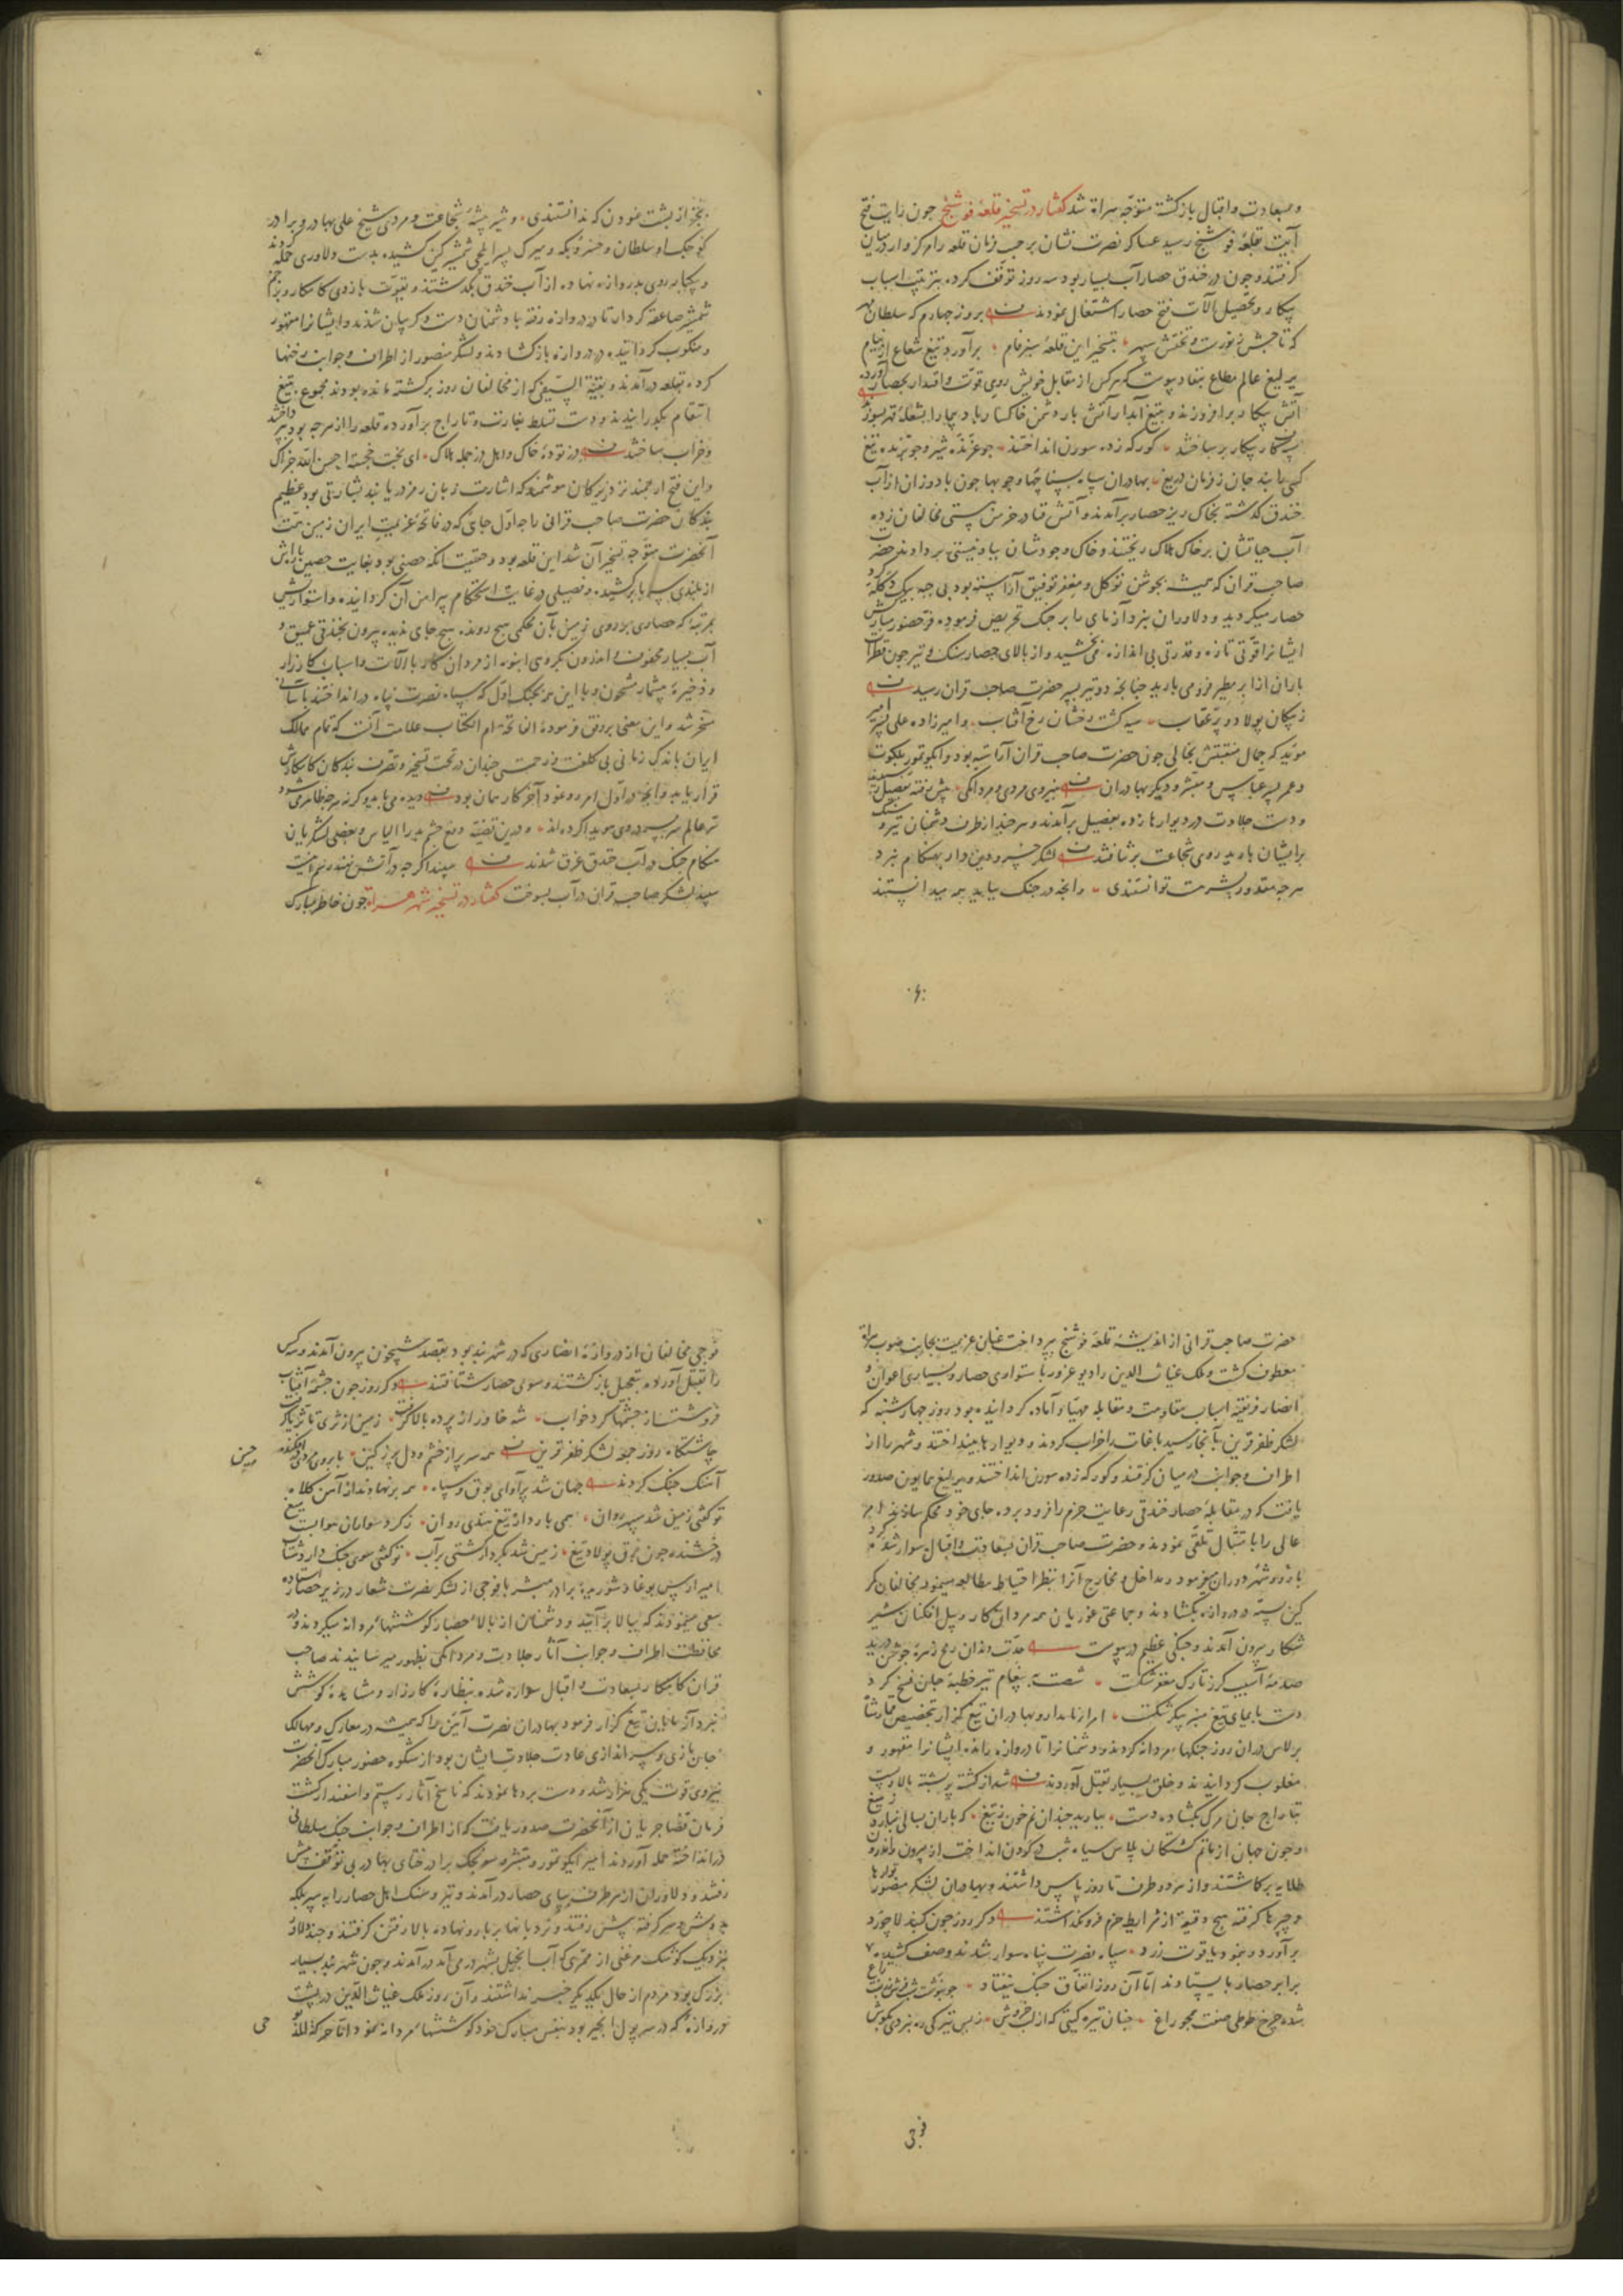 و بسعادت و اقبال بازگشته متوجه هراة شد گفتار در تسخیر قلعۀ فوشنج چون رایت فتح
آیت بقلعۀ فوشنج رسید عساکر نصرت نشان بر حسب فرمان قلعه را مرکزوار در میان
گرفتند و چون در خندق حصار آب بسیار بود سه روز توقف کرده بترتیب اسباب
پیکار و تحصیل آلات فتح حصار اشتغال نمودند بروز چهارم که سلطان مهر
که تاجش ز نورست و تختش سپهر بتسخیر این قلعۀ سبزفام برآورد تیغ شعاع از نیام
یرلیغ عالم مطاع بنفاذ پیوست که هر کس از مقابل خویش روی قوت و اقتدار بحصار آورده
آتش پیکار برافروزند و بتیغ آبدار آتش بار دشمن خاکسار باد پیما را بشعلۀ قهر بسوزند
کورکه زده سورن انداختند چو غرنده شیر و چو برنده تیغ
کسی را نبد جان ز فرمان دریغ بهادران سپاه بسناچها و چوبها چون باد وزان از آب
خندق گذشته بخاک ریز حصار برآمدند و آتش فنا در خرمن هستی مخالفان زده
آب حیاتشان بر خاک هلاک ریختند و خاک وجودشان بباد نیستی بردادند حضرت
صاحب قران که همیشه بجوشن توکل و مغفر توفیق آراسته بود بی جبه بیک دگله گرد
حصار میگردید و دلاوران نبرد آزمای را بر جنگ تحریص فرموده فر حضور مبارکش
ایشانرا قوتی تازه و قدرتی بی اندازه می بخشید و از بالای حصار سنگ و تیر چون قطرات
باران از ابر مطیر فرو می بارید چنانچه دو تیر بر حضرت صاحب قران رسید
ز پیکان پولاد و پر عقاب سیه گشت رخشان رخ آفتاب و امیرزاده علی پسر امیر
موید که جمال منقبتش بخالی چون حضرت صاحب قران آراسته بود و ایکو تمور بلکوت
و عمر پسر عباس و مبشر و دیگر بهادران بنیروی مردی و مردانگی پیش رفته بفصیل رسیدند
و دست جلادت در دیوارها زده بفصیل برآمدند و هر چند از طرف دشمنان تیر و سنگ
بر ایشان بارید روی شجاعت برنتافتند لشکر خسرو دین دار بهنگام نبرد
هر چه مقدور بشرست توانستندی و آنچه در جنگ بباید همه میدانستند
بجز از پشت نمودن که ندانستندی و شیر بیشۀ شجاعت و مردی شیخ علی بهادر و برادر
کوچک او سلطان و خسرو بکه و میرک پسر ایلچی شمشیر کین کشیده بدست دلاوری حمله کردند
و بیکبار روی بدروازه نهاده از آب خندق بگذشتند و بقوت بازوی کامکار و زخم
شمشیر صاعقه کردار تا در دروازه رفته با دشمنان دست و گریبان شدند و ایشانرا مقهور
و منکوب گردانیده در دروازه بازگشادند و لشکر منصور از اطراف و جوانب رخنها
کرده بقلعه درآمدند و بقیة السیفی که از مخالفان روز برگشته مانده بودند مجموع بتیغ
انتقام بگذرانیدند و دست تسلط بغارت و تاراج برآورده قلعه را از هر چه بود بپرداختند
و خراب ساختند دز تودۀ خاک و اهل دز جمله هلاک ای بخت خجسته احسن الله جزاک
و این فتح ارجمند نزد زیرکان هوشمند که اشارت زبان رمز دریابند بشارتی بود عظیم
بندگان حضرت صاحب قرانی را چه اول جای که در فاتحۀ عزیمت ایران زمین همت
آنحضرت متوجه تسخیر آن شد این قلعه بود و حقیقت آنکه حصنی بود بغایت حصین بارۀش
از بلندی سر بابر کشیده و فصیلی در غایت استحکام پیرامن آن گردانیده و استواریش
بمرتبۀ که حصاری بر روی زمین بآن محکمی هیچ رونده هیچ جای ندیده بیرون بخندقی عمیق و
آب بسیار محفوف و اندرون بگروهی انبوه از مردان کار با آلات و اسباب کارزار
و ذخیرۀ بیشمار مشحون و با این همه بجنگ اول که سپاه نصرت پناه درانداختند بآسانی
مسخر شد و این معنی بر وفق فرمودۀ الفاتحة ام الکتاب علامت آنست که تمام ممالک
ایران باندک زمانی بی کلفت و زحمتی چندان در تحت تسخیر و تصرف بندگان کامکارش
قرار یابد و آنچه در اول امر رو نمود آخر کار همان بود دیده می باید وگرنه هر چه ظاهر می شود
در عالم سر بسر روی موید کرده اند و درین قضیه دفع چشم بد را الیاس و بعضی لشکریان
هنگام جنگ در آب خندق غرق شدند سپند اگر چه در آتش نهند رسم اینست
سپند لشکر صاحب قران در آب بسوخت گفتار در تسخیر شهر هراة چون خاطر مبارک
حضرت صاحب قرانی از اندیشۀ قلعۀ فوشنج بپرداخت عنان عزیمت بجانب صوب هراة
معطوف گشت و ملک غیاث الدین را دیو غرور باستواری حصار و بسیاری اعوان و
انصار فریفته اسباب مقاومت و مقابله مهیا و آماده گردانیده بود روز چهارشنبه که
لشکر ظفر قرین بآنجا رسید باغات را خراب کردند و دیوارها بینداختند و شهر را از
اطراف و جوانب در میان گرفتند و کورکه زده سورن انداختند و یرلیغ همایون صدور
یافت که در مقابلۀ حصار خندقی رعایت حزم را فرو برده جای خود محکم سازند امر
عالی را بامتثال تلقی نمودند و حضرت صاحب قران بسعادت و اقبال سوار شده
بارو و شهر دوران میفرمود و مداخل و مخارج آنرا بنظر احتیاط مطالعه مینمود مخالفان مکر
کین بسته دروازه بگشادند و جماعتی غوریان همه مردان کار و پیل افکنان شیر
شکار بیرون آمدند و جنگی عظیم درپیوست حدت دندان رمح زهرۀ جوشن درید
صدمۀ آسیب گرز تارک مغفر شکست شصت به پیغام تیر خطبۀ جان فسخ کرد
دست بایمای تیغ منبر پیکر شکست امراء نامدار و بهادران تیغ گزار بتخصیص
برلاس در آن روز جنگهاء مردانه کردند و دشمنانرا تا دروازه رانده ایشانرا مقهور و
مغلوب گردانیدند و خلق بسیار بقتل آوردند شد از کشته پر پشته بالا و پست
بتاراج جان مرگ بگشاده دست ببارید چندان نم خون ز تیغ که باران بسالی نبارد ز میغ
و چون جهان از ماتم کشتگان پلاس سیاه شب در گردن انداخت از بیرون و اندرون
طلایه برگماشتند و از هر دو طرف تا روز پاس داشتند و بهادران لشکر منصور تورها
و چپرها گرفته هیچ دقیقه از شرایط حزم فرو نگذاشتند دگر روز چون گنبد لاجورد
برآورد و بنمود یاقوت زرد سپاه نصرت پناه سوار شدند و صف کشیده
برابر حصار بایستادند اما آن روز اتفاق جنگ نیفتاد
شده چرخ طوطی صفت همچو زاغ چنان تیره گیتی که از لب خروش ز بس تیرگی ره نبردی بگوش
فوجی مخالفان از دروازۀ انصاری که در شهر بند بود بقصد شبیخون بیرون آمدند و سه کس
را بقتل آورده بتعجیل بازگشتند و سوی حصار شتافتند دگر روز چون چشمۀ آفتاب
فروشست از چشمها گرد خواب شه خاور از پرده بالا گرفت زمین از ثری تا ثریا گرفت
چاشتگاه روز جمعه لشکر ظفر قرین همه سر پر از خشم و دل پر ز کین بابروی مردی درافکنده چین
آهنگ جنگ کردند جهان شد پر آوای بوق و سپاه همه برنهادند از آهن کلاه
تو گفتی زمین شد سپهر روان همی بارد از تیغ هندی روان ز گرد سواران هوا بست میغ
درخشنده چون برق پولاد تیغ زمین شد بکردار کشتی بر آب تو گفتی سوی جنگ دارد شتاب
برادر مبشر با فوجی از لشکر نصرت شعار در زیر حصار ایستاده
سعی مینمودند که ببالا برآیند و دشمنان از بالاء حصار کوششهاء مردانه میکردند و در
محافظت اطراف و جوانب آثار جلادت و مردانگی بظهور میرسانیدند صاحب
قران کامکار بسعادت و اقبال سوار شده بنظارۀ کارزار و مشاهدۀ کوشش
نبرد آزمایان تیغ گزار فرمود بهادران نصرت آیین را که همیشه در معارک و مهالک
جان بازی و سر اندازی عادت جلادت ایشان بود از شکوه حضور مبارک آنحضرت
نیروی قوت یکی هزار شد و دست بردها نمودند که ناسخ آثار رستم و اسفندیار گشت
فرمان قضا جریان از آنحضرت صدور یافت که از اطراف و جوانب جنگ سلطانی
درانداخته حمله آوردند امیر ایکو تمور و مبشر و سونجک برادر ختای بهادر بی توقف پیش
رفتند و دلاوران از هر طرف بپای حصار درآمدند و تیر و سنگ اهل حصار را به سپر بلکه
بدوش و سر گرفته پیش رفتند و نردبانها بر بارو نهاده بالا رفتن گرفتند و چند دلاور
نزدیک کوشک مرغنی از ممری که آب انجیل بشهر درمی آمد درآمدند و چون شهر بند بسیار
بزرگ بود مردم از حال یکدیگر خبر نداشتند و آن روز ملک غیاث الدین در پشت
دروازۀ که در سر پول انجیر بود بنفس مبارک خود کوششهاء مردانه نمود اما چه که للدولة
فوجی